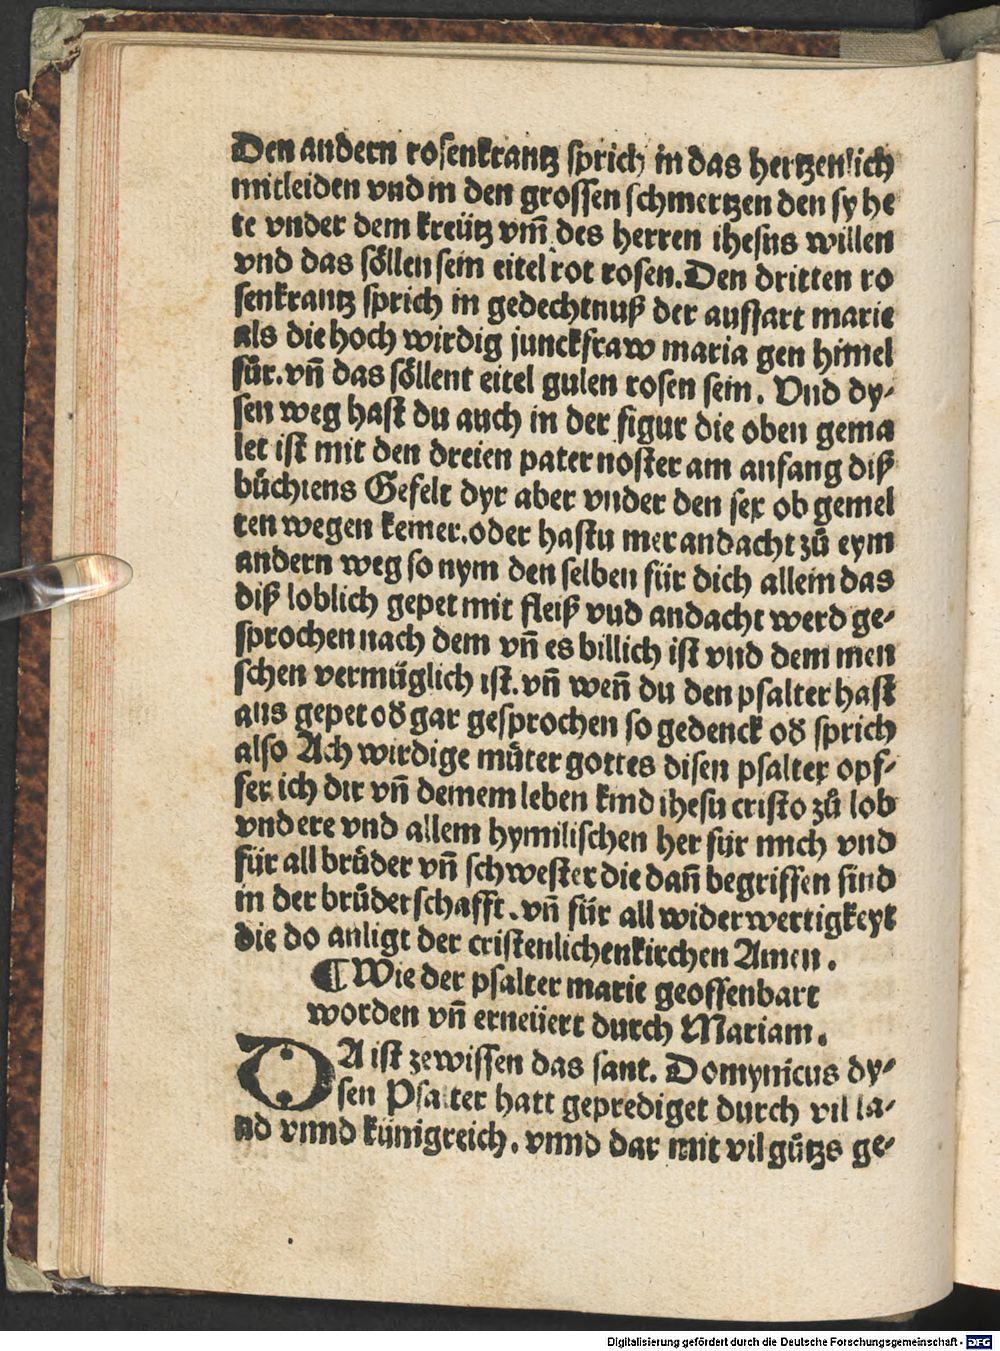 Den andern rosenkrantz sprich in das hertzenlich
mitleiden vnd in den grossen schmertzen den sy he
te vnder dem kreütz vm̄ des herren ihesus willen
vnd das söllen sein eitel rot rosen. Den dritten ro
senkrantz sprich in gedechtnuß der auffart marie
als die hoch wirdig junckfraw maria gen himel
für. vn̄ das söllent eitel gulen rosen sein. Vnd dy⸗
sen weg hast du auch in der figur die oben gema
let ist mit den dreien pater noster am anfang diß
büchlens Gefelt dyr aber vnder den sex ob gemel
ten wegen kemer. oder hastu mer andacht zů eym
andern weg so nym den selben für dich allein das
diß loblich gepet mit fleiß vnd andacht werd ge⸗
sprochen nach dem vn̄ es billich ist vnd dem men
schen vermüglich ist. vn̄ wen̄ du den psalter hast
aus gepet od̄ gar gesprochen so gedenck od̄ sprich
also Ach wirdige můter gottes disen psalter opf⸗
fer ich dir vn̄ deinem leben kind ihesu cristo zů lob
vnd ere vnd allem hymilischen her für mich vnd
für all brůder vn̄ schwester die dan̄ begriffen sind
in der brůderschafft. vn̄ für all widerwertigkeyt
die do anligt der cristenlichenkirchen Amen.
¶ Wie der psalter marie geoffenbart
worden vn̄ erneüert durch Mariam.
DA ist zewissen das sant. Domynicus dy⸗
sen Psalter hatt geprediget durch vil la⸗
nd vnnd künigreich. vnnd dar mit vil gůtzs ge⸗
Digitalisierung gefördert durch die Deutsche Forschungsgemeinschaft - DFG